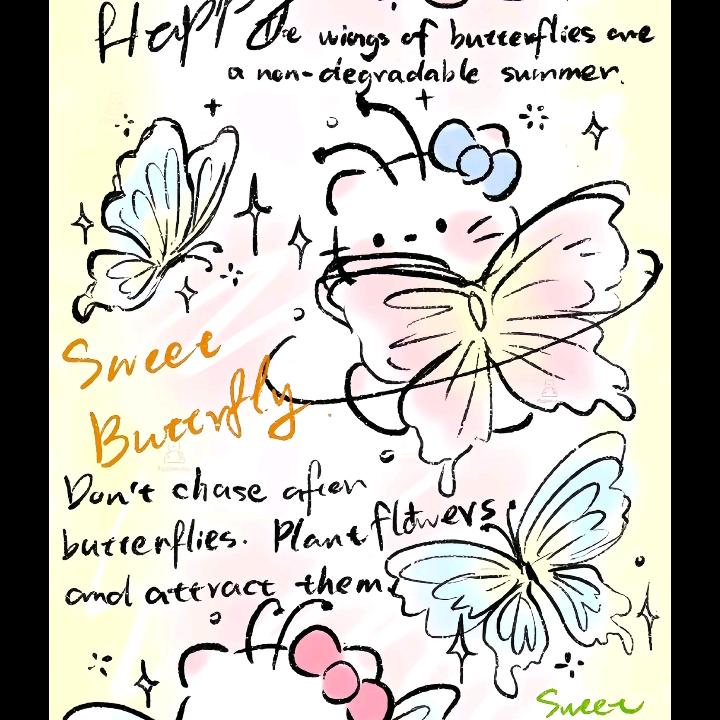 Happy
The wings of butterflies are
a non-degradable summer.
Sweet
Butterfly.
Don't chase after
butterflies. Plant flowers
and attract them.
Sweet